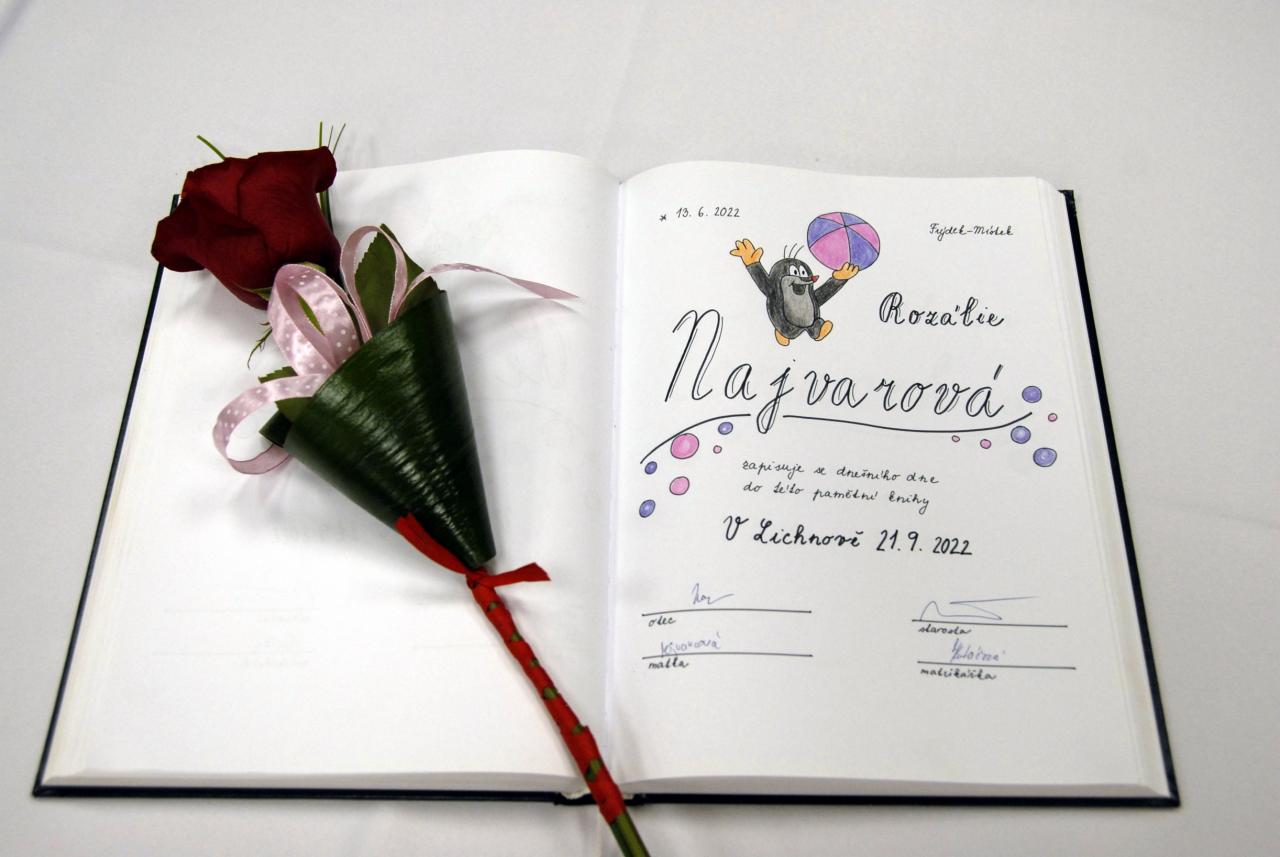 * 13. 6. 2022
Frýdek-Místek
Rozálie
Najvarová
zapisuje se dnešního dne
do této pamětní knihy
V Lichnově 21. 9. 2022
otec
starosta
matka
matrikářka